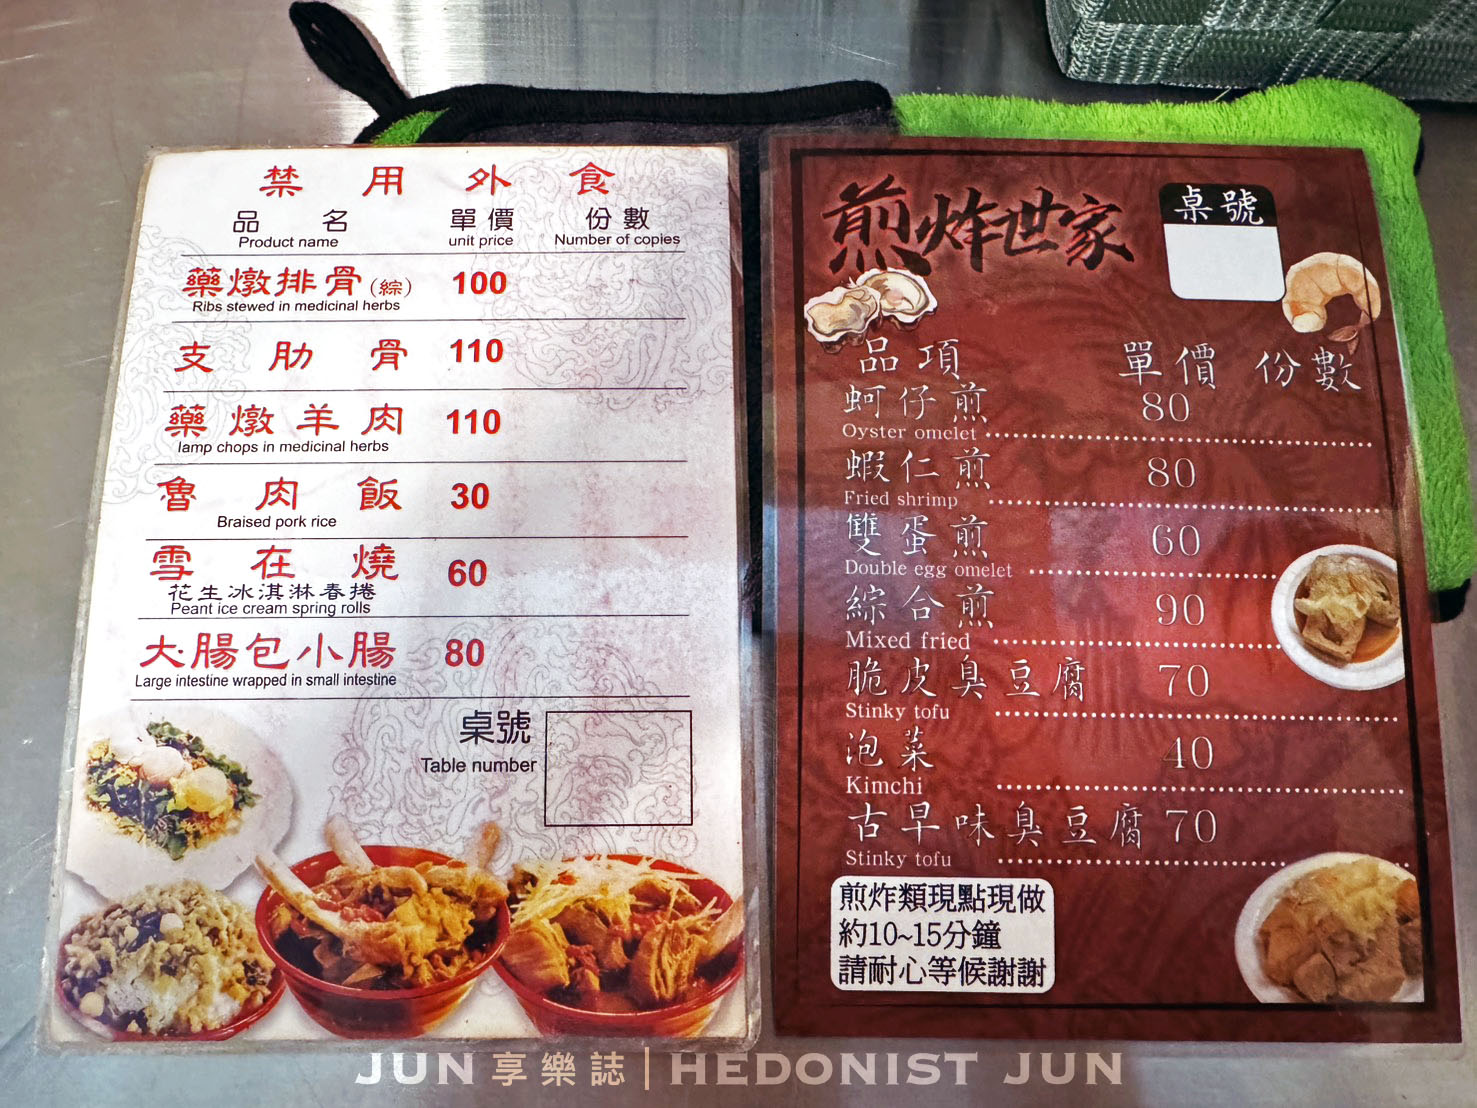 禁用外食
品名 單價 份數
Product name unit price Number of copies
藥燉排骨(綜) 100
Ribs stewed in medicinal herbs
支肋骨 110
藥燉羊肉 110
lamp chops in medicinal herbs
魯肉飯 30
Braised pork rice
雪在燒 60
花生冰淇淋春捲
Peant ice cream spring rolls
大腸包小腸 80
Large intestine wrapped in small intestine
桌號
Table number
煎炸世家
桌號
品項 單價 份數
蚵仔煎 80
Oyster omelet
蝦仁煎 80
Fried shrimp
雙蛋煎 60
Double egg omelet
綜合煎 90
Mixed fried
脆皮臭豆腐 70
Stinky tofu
泡菜 40
Kimchi
古早味臭豆腐 70
Stinky tofu
煎炸類現點現做
約10~15分鐘
請耐心等候謝謝
JUN享樂誌|HEDONIST JUN